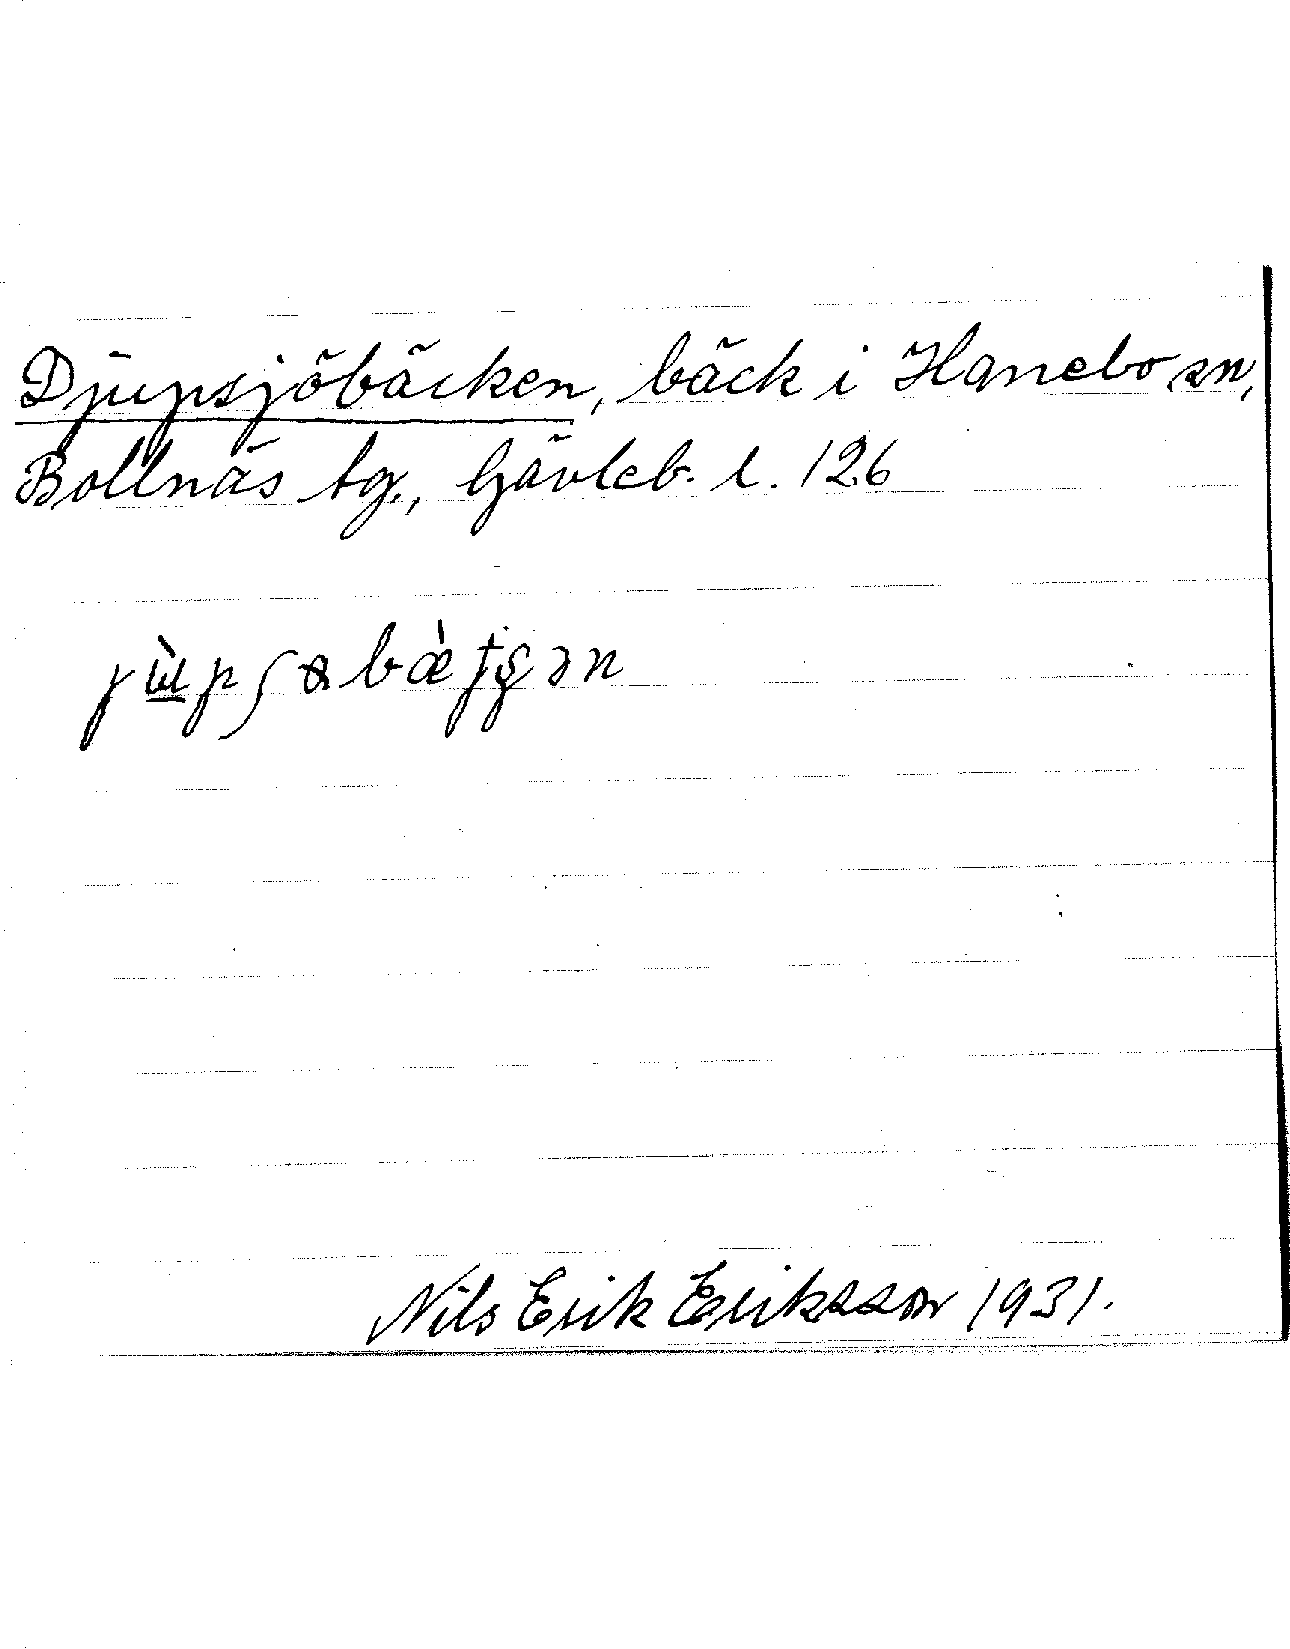 Djupsjöbäcken, bäck i Hanebo sn,
Bollnäs tg., Gävleb. l. 126
Nils Erik Eriksson 1931.